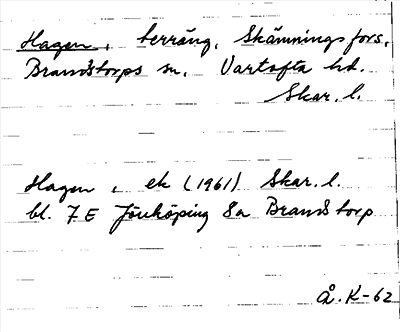 Hagen, terräng, Skämningsfors,
Brandstorps sn, Vartofta hd.
Skar. l.
Hagen, ek (1961) Skar. l.
bl. 7E Jönköping 8a Brandstorp
Å. K-62